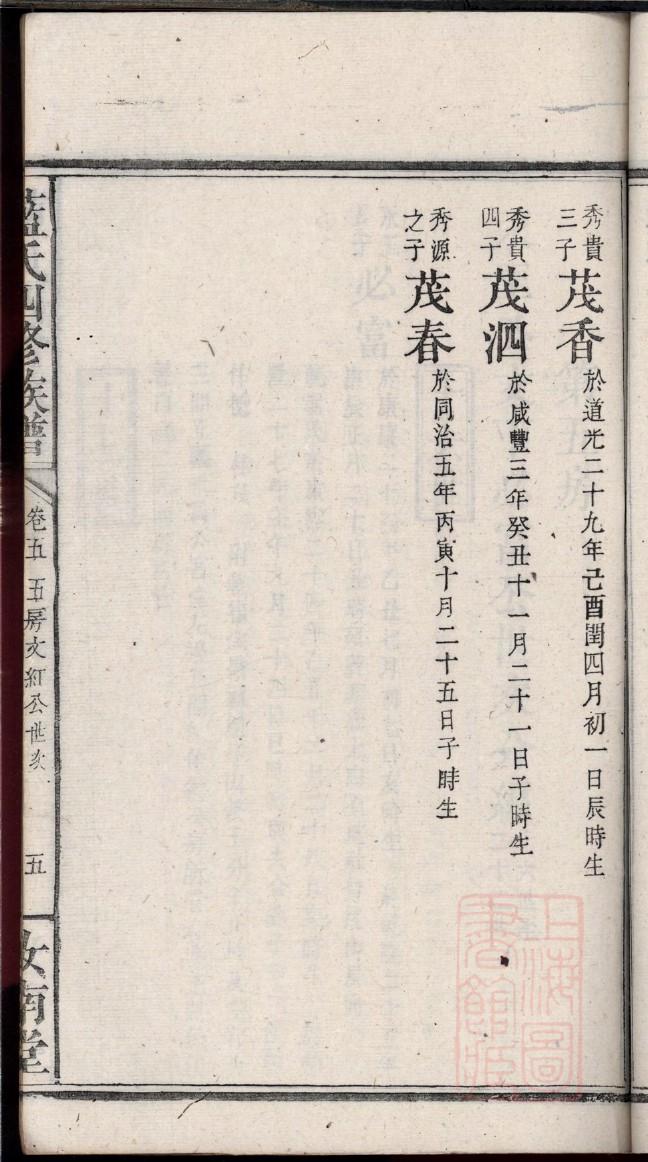 秀貴三子 茂香 於道光二十九年己酉閏四月初一日辰時生
秀貴四子 茂泗 於咸豐三年癸丑十一月二十一日子時生
秀源之子 茂春 於同治五年丙寅十月二十五日子時生
藍氏四修族譜
卷五 五房文紅公世系
五
汝南堂
上海圖
書館